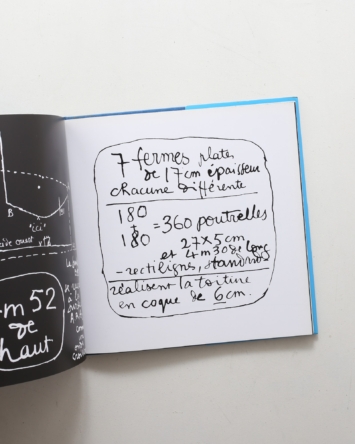 B
"ici"
m 52
de
haut
7 fermes plates
de 17cm épaisseur
chacune différente
180
+
180
= 360 poutrelles
27x5cm
et 4m30 de long
- rectilignes, standards
réalisent la toiture
en coque de 6cm.